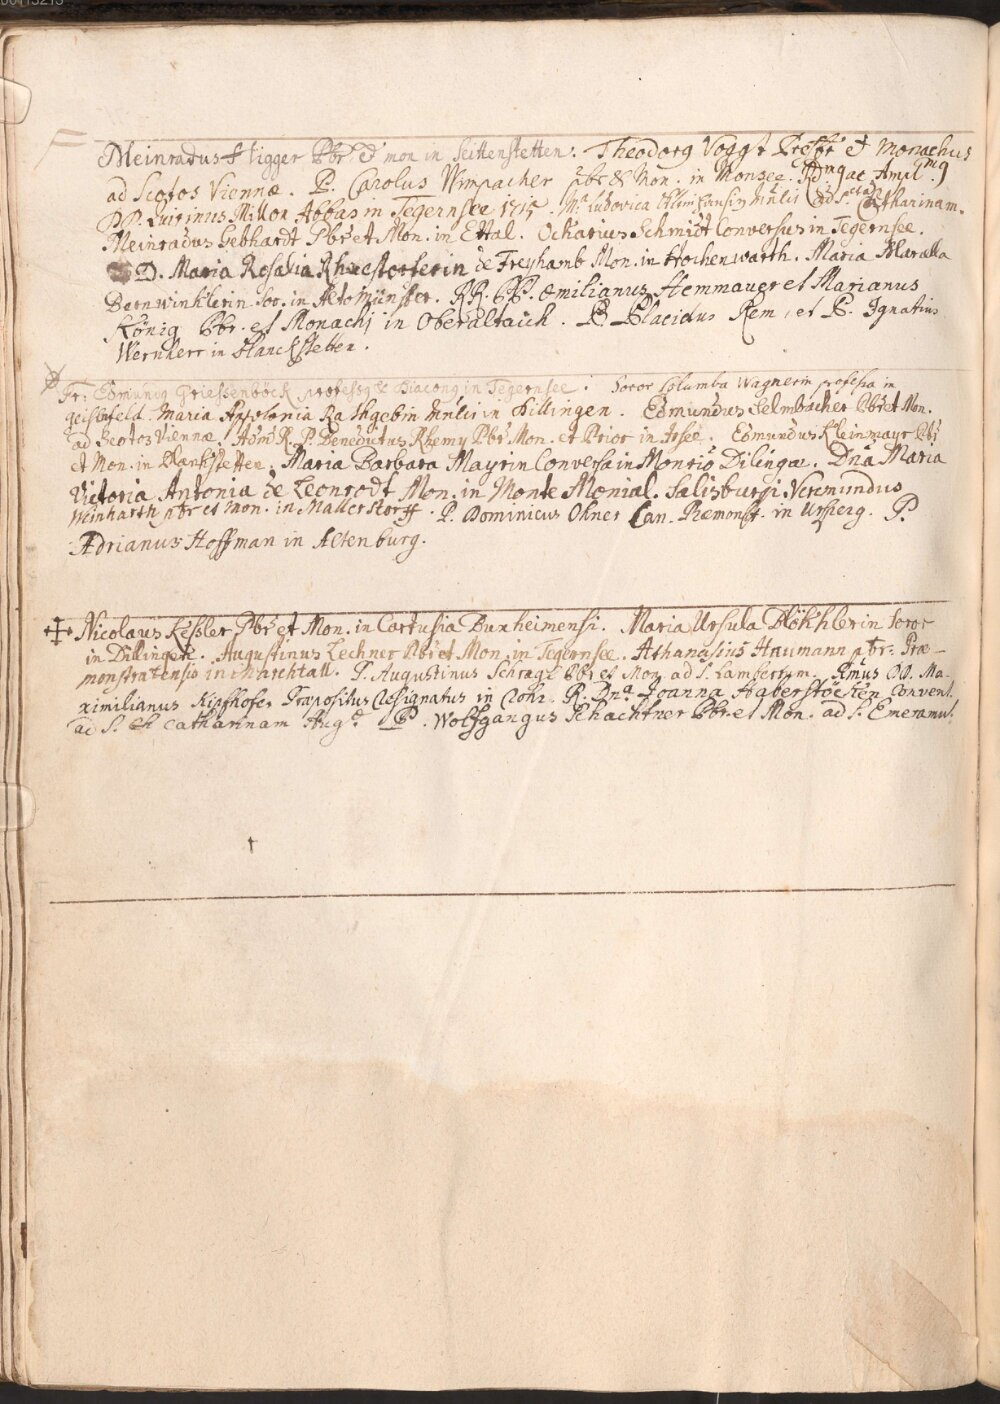 Meinradus Higger Pbr. et mon in Seittenstetten. Theodorg Voggt Presbr et Monachus
ad Scotos Viennæ. P. Carolus Wimpacher pbr & Mon. in Monsee. Rdmg ac Ampl.mg
D.D. Quirinus Millon Abbas in Tegernsee 1715. Ma Ludovica ad S. Catharinam.
Meinradus Gebhardt Pbr et Mon. in Ettal. Otkarius Schmidt Conversus in Tegernsee.
D. Maria Rosalia Rhaestorferin de Freyhamb Mon. in Hochenwarth. Maria Marcella
Bernwinklerin Sor. in Altomünster. RR. PP. Æmilianus Hemmauer et Marianus
König Pbr. et Monachj in Oberaltaich. P. Placidus Rem, et P. Ignatius
Wernherr in Planckstetten.
Fr: Edmundg Griessenböck professg & Diacong in Tegernsee. Soror Columba Wagnerin professa in
geisenfeld. Maria Appolonia Ra in Dillingen. Edmundus Selmbacher Pbr et Mon.
ad Scotos Viennæ. Adm. R. P. Benedictus Rhemy Pbr. Mon. et Prior in Irsee. Edmundus Kleinmayr Pbr
et Mon. in Planckstetten. Maria Barbara Mayrin Conversa in Monrio Dilingæ. Dna Maria
Victoria Antonia de Leonrodt Mon. in Monte Monial. Salisburgi Veremundus
Weinharth pbr et mon. in Mallerstorff. P. Dominicus Ohner Can. Præmonst. in Ursperg. P.
Adrianus Hoffman in Altenburg.
Nicolaus Kessler Pbr et Mon. in Cartusia Buxheimensi. Maria Ursula Plökhlerin Soror
in Dillingen. Augustinus Lechner Pbr et Mon. in Tegernsee. Athanasius Naumann pbr: Præ-
monstratensis in Marchtall. P. Augustinus Schragl Pbr et Mon. ad S. Lambertum. Rmus DD. Ma-
ximilianus Kipfhofer Præpositus Resignatus in Rohr. R. Dna Joanna Haberstöckin Convent.
ad S. Catharinam Aug. P. Wolfgangus Schachtner Pbr. et Mon. ad S. Emeramu.